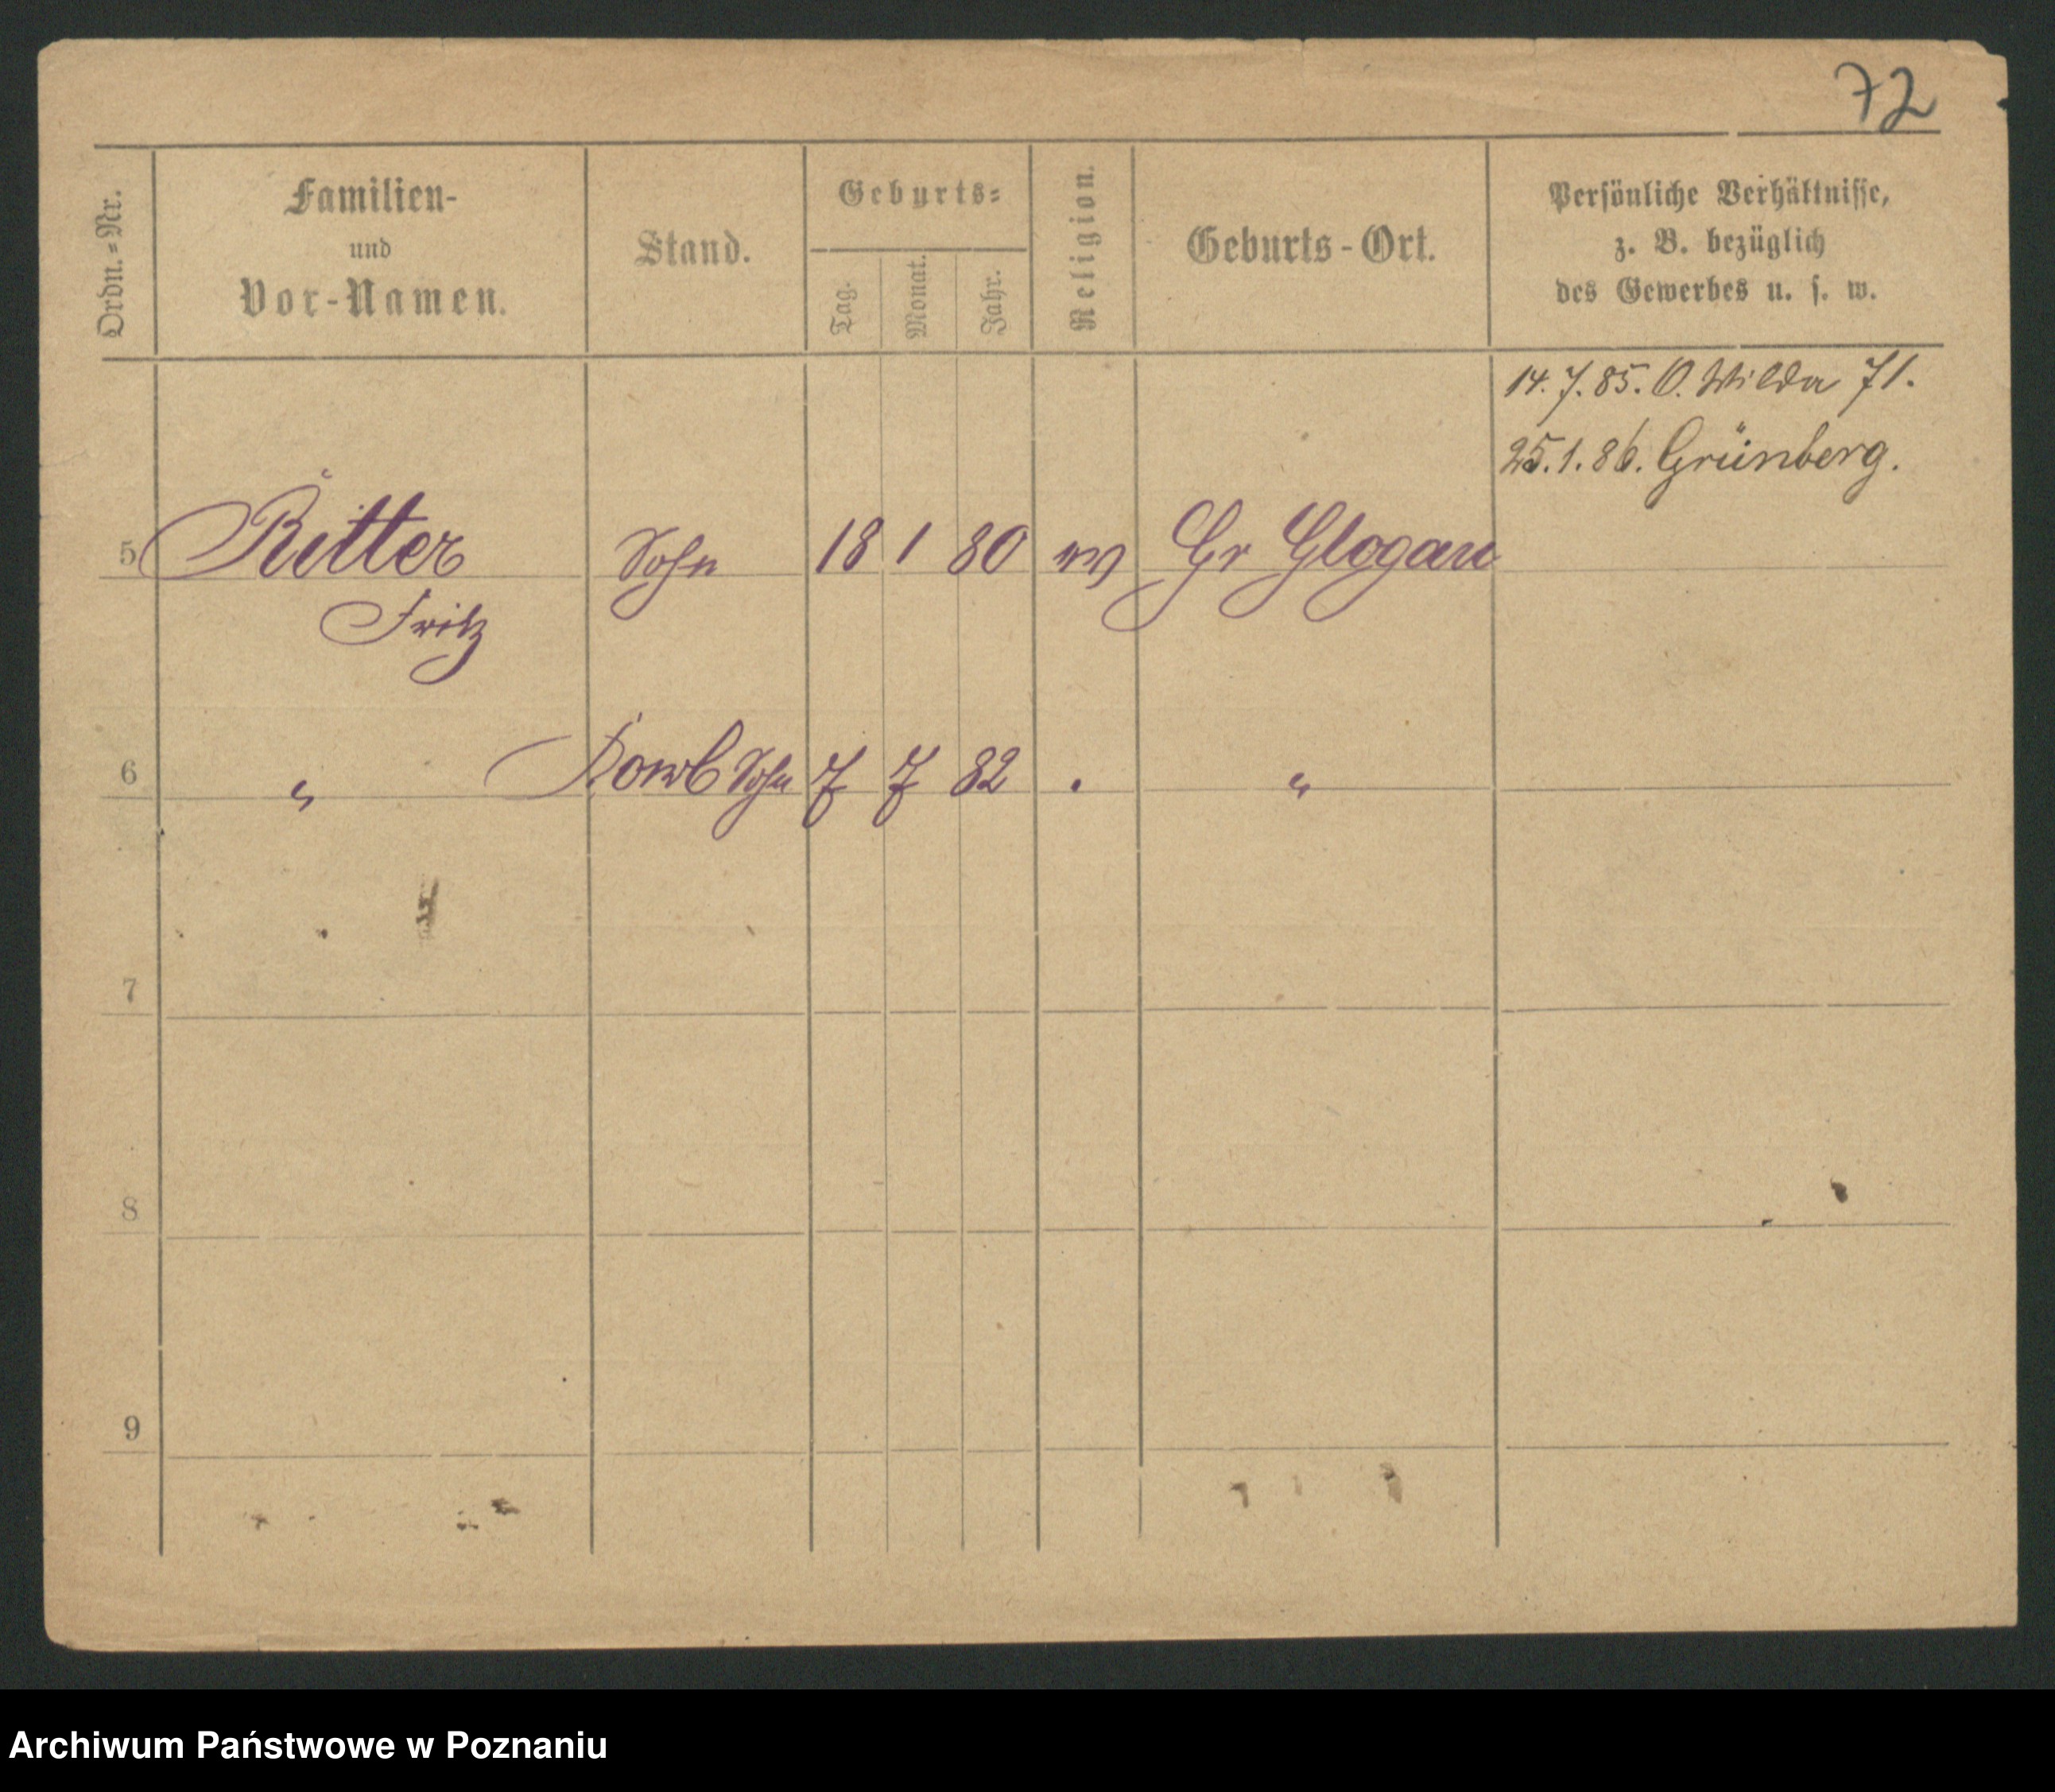 72
Ordn.=Nr.
Familien-
und
Vor-Namen.
Stand.
Geburts=
Tag.
Monat.
Jahr.
Religion.
Geburts-Ort.
Persönliche Verhältnisse,
z. B. bezüglich
des Gewerbes u. s. w.
14. 7. 85. O. Wilda 71.
25. 1. 86. Grünberg.
5 Ritter Sohn 18 1 80 ev Gr Glogau
Fritz
6 " Sohn 7 7 82 . "
7
8
9
Archiwum Państwowe w Poznaniu